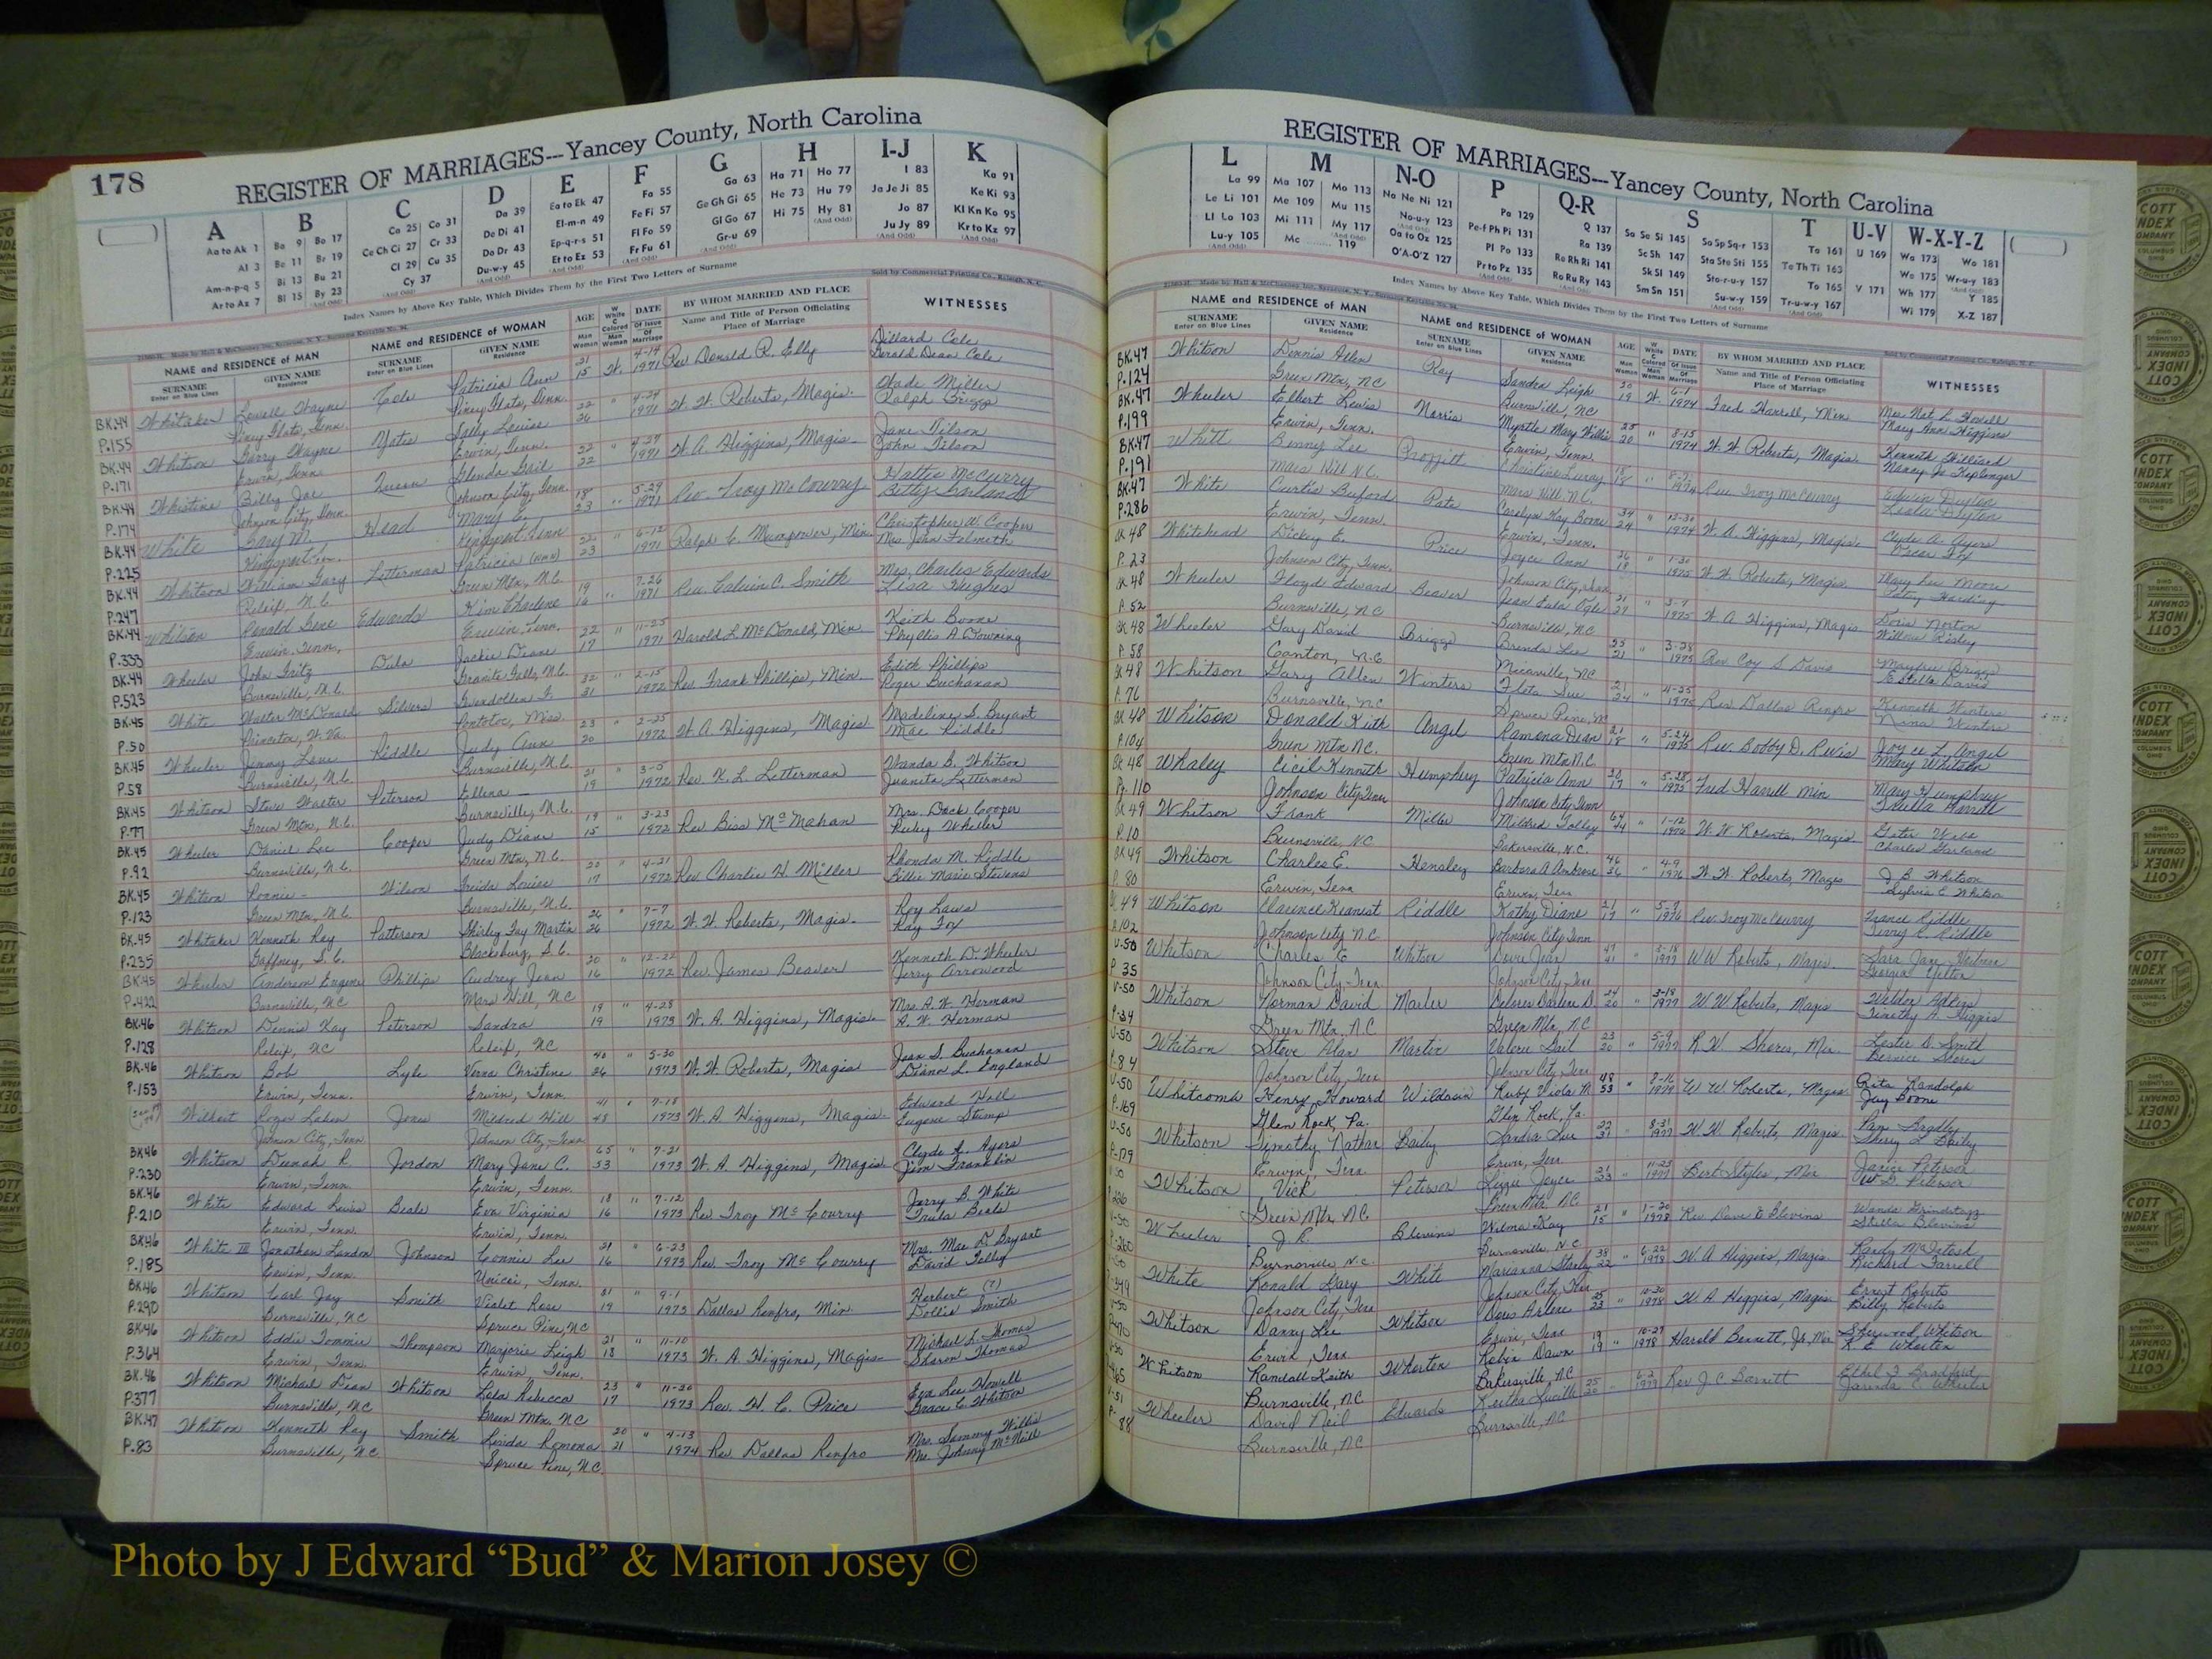 178
REGISTER OF MARRIAGES---Yancey County, North Carolina
A B C D E F G H I-J K
Aa to Ak 1 Ba 9 Bo 17 Ca 25 Co 31 Da 39 Ea to Ek 47 Fa 55 Ga 63 Ha 71 Ho 77 I 83 Ka 91
Al 3 Be 11 Br 19 Ce Ch Ci 27 Cr 33 De Di 41 El-m-n 49 Fe Fi 57 Ge Gh Gi 65 He 73 Hu 79 Ja Je Ji 85 Ke Ki 93
Am-n-p-q 5 Bi 13 Bu 21 Cl 29 Cu 35 Do Dr 43 Ep-q-r-s 51 Fl Fo 59 Gl Go 67 Hi 75 Hy 81 Jo 87 Kl Kn Ko 95
Ar to Az 7 Bl 15 By 23 Cy 37 Du-w-y 45 Et to Ez 53 Fr Fu 61 Gr-u 69 Ju Jy 89 Kr to Kz 97
Index Names by Above Key Table, Which Divides Them by the First Two Letters of Surname
Sold by Commercial Printing Co., Raleigh, N. C.
NAME and RESIDENCE of MAN NAME and RESIDENCE of WOMAN AGE DATE BY WHOM MARRIED AND PLACE WITNESSES
SURNAME GIVEN NAME SURNAME GIVEN NAME Name and Title of Person Officiating
Enter on Blue Lines Residence Enter on Blue Lines Residence Place of Marriage
BK.44 Whitaker Lowell Wayne Cole Patricia Ann 21 W. 4-14 Rev Donald R. Elly Dillard Cole
P.155 Piney Flats, Tenn. Piney Flats, Tenn. 15 1971 Gerald Dean Cole
BK.44 Whitson Garry Wayne Yates Sally Louise 22 " 1971 W. W. Roberts, Magis. Wade Miller
P.171 Erwin, Tenn. Erwin, Tenn. 26 Ralph Briggs
BK.44 Billy Joe Queen Glenda Gail 22 " 4-27 1971 W. A. Higgins, Magis. Jane Wilson
P.174 Johnson City, Tenn. Johnson City, Tenn. 22 John Wilson
BK.44 White Gary M. Head Mary E. 18 " 5-29 1971 Rev. Troy McCourry Hattie McCurry
P.225 Kingsport, Tenn 23 Betty Garland
BK.44 Whitson William Gary Letterman Patricia (NMN) 22 " 6-12 1971 Ralph C. Mumpower, Min. Christopher W. Cooper
P.247 Releif, N.C. Green Mtn, N.C. 23
BK.44 Whitson Ronald Gene Edwards Kim Charlene 19 " 7-26 1971 Rev. Calvin C. Smith Mrs. Charles Edwards
P.333 Erwin, Tenn. Erwin, Tenn. 16 Lisa Hughes
BK.44 Wheeler John Fritz Jackie Diane 22 " 11-25 1971 Harold L. McDonald, Min Keith Boone
P.523 Burnsville, N.C. Granite Falls, N.C. 17 Phyllis A. Downing
BK.45 White Walter McDonald Silvers 32 " 2-15 1972 Rev. Frank Phillips, Min. Edith Phillips
P.50 Princeton, W. Va. Pontotoc, Miss. 31 Roger Buchanan
BK.45 Wheeler Jimmy Lane Riddle Judy Ann 23 " 2-25 1972 W. A. Higgins, Magis Madeline S. Bryant
P.58 Burnsville, N.C. Burnsville, N.C. 20 Mae Riddle
BK.45 Whitson Steve Walter Peterson Ellena 21 " 3-5 1972 Rev. K. L. Letterman Wanda B. Whitson
P.77 Green Mtn, N.C. Burnsville, N.C. 19 Juanita Letterman
BK.45 Wheeler Daniel Lee Cooper Judy Diane 19 " 3-23 1972 Rev Biss McMahan Mrs. Dock Cooper
P.92 Burnsville, N.C. Green Mtn, N.C. 15 Ruby Wheeler
BK.45 Whitson Ronnie Wilson Freida Louise 20 " 4-21 1972 Rev Charlie H. Miller Rhonda M. Riddle
P.123 Green Mtn, N.C. Burnsville, N.C. 17 Billie Marie Stevens
BK.45 Whitaker Kenneth Ray Patterson Shirley Fay Martin 26 " 7-7 1972 W. W. Roberts, Magis. Roy Laws
P.235 Gaffney, S.C. Blacksburg, S.C. 26 Ray Fox
BK.45 Wheeler Anderson Eugene Phillips Audrey Jean 20 " 12-22 1972 Rev. James Beaver Kenneth D. Wheeler
P.422 Burnsville, NC Mars Hill, NC 16 Jerry Arrowood
BK.46 Whitson Dennis Kay Peterson Sandra 19 " 4-28 1973 W. A. Higgins, Magis. Mrs A. W. Herman
P.128 Releif, NC Releif, NC 19 A. W. Herman
BK.46 Whitson Bob Lyle Verna Christine 40 " 5-30 1973 W. W. Roberts, Magis Jean S. Buchanan
P.153 Erwin, Tenn. Erwin, Tenn. 26 Diana L. England
Roger Laken Jones Mildred Hill 41 " 7-18 1973 W. A. Higgins, Magis. Edward Hall
Johnson City, Tenn. Johnson City, Tenn 48 Eugene Stump
BK46 Whitson Jordon Mary Jane C. 65 " 7-21 1973 W. A. Higgins, Magis Clyde A. Ayers
P.230 Erwin, Tenn. Erwin, Tenn. 53 Jim Franklin
BK.46 White Edward Lewis Beals Eva Virginia 18 " 7-12 1973 Rev Troy McCourry Jerry B. White
P.210 Erwin, Tenn. Erwin, Tenn. 16 Trula Beals
BK46 White III Jonathan Landon Johnson Connie Lee 21 " 6-23 1973 Rev. Troy McCourry Mrs. Mae D Bryant
P.185 Erwin, Tenn. Unicoi, Tenn. 16 David Tolley
BK46 Whitson Carl Jay Smith Violet Rose 31 " 9-1 1973 Dallas Renfro, Min Herbert (?)
P.290 Burnsville, NC Spruce Pine, NC 19 Dollie Smith
BK.46 Whitson Eddie Tommie Thompson Marjorie Leigh 21 " 11-10 1973 W. A. Higgins, Magis Michael L. Thomas
P.364 Erwin, Tenn. Erwin Tenn. 18 Sharon Thomas
BK.46 Whitson Michael Dean Whitson Lola Rebecca 23 " 11-20 1973 Rev. H. C. Price Eva Lee Howell
P.377 Burnsville, NC Green Mtn. NC 17 Grace C. Whitson
BK.47 Whitson Kenneth Ray Smith Linda Romona 20 " 4-13 1974 Rev. Dallas Renfro Mrs. Sammy Willis
P.83 Burnsville, NC. Spruce Pine, NC. 21 Mrs. Johnny McNeill
REGISTER OF MARRIAGES---Yancey County, North Carolina
L M N-O P Q-R S T U-V W-X-Y-Z
La 99 Ma 107 Mo 113 Na Ne Ni 121 Pa 129 Q 137 Sa Se Si 145 So Sp Sq-r 153 Ta 161 U 169 Wa 173 Wo 181
Le Li 101 Me 109 Mu 115 No-u-y 123 Pe-f Ph Pi 131 Ra 139 Sc Sh 147 Sta Ste Sti 155 Te Th Ti 163 We 175 Wr-u-y 183
Ll Lo 103 Mi 111 My 117 Oa to Oz 125 Pl Po 133 Re Rh Ri 141 Sk Sl 149 Sto-r-u-y 157 To 165 V 171 Wh 177 Y 185
Lu-y 105 Mc 119 O'A-O'Z 127 Pr to Pz 135 Ro Ru Ry 143 Sm Sn 151 Su-w-y 159 Tr-u-w-y 167 Wi 179 X-Z 187
Index Names by Above Key Table, Which Divides Them by the First Two Letters of Surname
Sold by Commercial Printing Co., Raleigh, N. C.
NAME and RESIDENCE of MAN NAME and RESIDENCE of WOMAN AGE DATE BY WHOM MARRIED AND PLACE WITNESSES
SURNAME GIVEN NAME SURNAME GIVEN NAME Name and Title of Person Officiating
Enter on Blue Lines Residence Enter on Blue Lines Residence Place of Marriage
BK.47 Whitson Dennis Allen Ray Sandra Leigh 20 W. 6-1 1974 Fred Harrell, Min Mrs Nat L. Howell
P.124 Green Mtn, NC Burnsville, NC 19 Mary Ann Higgins
BK.47 Wheeler Elbert Lewis Norris Myrtle Mary Willis 25 " 8-15 1974 W. W. Roberts, Magis. Kenneth Hilliard
P.199 Erwin, Tenn. Erwin, Tenn. 20 Nancy Jo Keplinger
BK47 Whitt Benny Lee Proffitt Christine Luray 18 " 1974 Rev Troy McCurry Edwin Deyton
P.191 Mars Hill N.C. Mars Hill, N.C. 18 Deyton
BK.47 White Curtis Buford Pate Carolyn Kay Boone 34 " 1974 W. A. Higgins, Magis. Clyde A. Ayers
P.286 Erwin, Tenn. Erwin, Tenn. 24 Oscar Fox
BK 48 Whitehead Dickey E. Price Joyce Ann " 1-30 1975 W. W. Roberts, Magis. Mary Lee Moore
P. 23 Johnson City, Tenn. Johnson City, Tenn 18 Harding
BK 48 Wheeler Floyd Edward Beaver Jean Eula Ogle " 3-7 1975 W A Higgins, Magis Doris Norton
P. 52 Burnsville, NC Burnsville, NC 27 Risley
BK 48 Wheeler Gary David Briggs Brenda Lee 25 " 3-28 1975 Rev Coy S Davis Briggs
P 58 Canton, N.C. Micaville, NC 21 Estelle Davis
BK 48 Whitson Gary Allen Winters Fleta Sue 21 " 4-25 1975 Rev Dallas Renfro Kenneth Winters
P. 76 Burnsville, N.C. Spruce Pine, N 24 Nina Winters
BK 48 Whitson Donald Keith Angel Ramona Dean 21 " 5-24 1975 Rev. Bobby D. Revis Joyce L. Angel
P.104 Green Mtn NC. Green Mtn N.C. 18 Mary Whitson
BK 48 Whaley Cicil Kenneth Humphrey Patricia Ann 20 " 5-28 1975 Fred Harrell Min Mary Humphrey
P. 110 Johnson City Tenn Johnson City Tenn 17 Luella Harrell
BK 49 Whitson Frank Miller Mildred Tolley 64 " 1-12 1976 W. W. Roberts, Magis. Gater Webb
P.10 Burnsville, NC Bakersville, N.C. Charles Garland
BK 49 Whitson Charles E. Hensley Barbara A Ambrose 46 " 4-9 1976 W. W. Roberts, Magis J B Whitson
P. 80 Erwin, Tenn Erwin, Tenn 36 Sylvia E Whitson
BK 49 Whitson Clarence Riddle Kathy Diane 21 " 5-9 1976 Rev. Troy McCurry France Riddle
P.102 Johnson City N.C. Johnson City Tenn 17 Terry R. Riddle
V-50 Whitson Charles E Whitson Jean " 1977 W W Roberts, Magis. Sara Jane
P 35 Johnson City-Tenn Johnson City-Tenn 41 Georgia Yelton
V-50 Whitson Norman David Marler Delores Darlene D 24 " 3-18 1977 W. W. Roberts, Magis Weldon Adkins
P.34 Green Mtn, N.C. Green Mtn. N.C. 20 Timothy A. Higgins
V-50 Whitson Steve Alan Martin Valerie Gail 23 " 5-9 1977 R. W. Shores, Min. Lester D. Smith
P.84 Johnson City-Tenn Johnson City-Tenn 20 Bernice Shores
V-50 Whitcomb Henry Howard Wildasin Ruby Viola M 48 " 8-16 1977 W W Roberts, Magis Rita Randolph
P.169 Glen Rock, Pa. Glen Rock, Pa. 53 Jay Boone
V-50 Whitson Timothy Nathan Baily Sandra Sue 22 " 8-31 1977 W. W. Roberts, Magis
P-179 Erwin, Tenn Erwin, Tenn Sherry L. Baily
Whitson Vick Peterson Joyce 21 " 11-23 1977 Bert Styles, Min Janice Peterson
Green Mtn, N.C. Green Mtn. NC. 23 W D. Peterson
Wheeler J. R. Blevins Wilma Kay 21 " 1-20 1978 Rev Dave E Blevins Wanda Grindstaff
P-260 Burnsville, N.C. Burnsville, N.C. 15 Stella Blevins
White Ronald Gary White Marianna Stanley 38 " 6-22 1978 W. A Higgins, Magis. Randy McIntosh
P-349 Johnson City, Tenn Johnson City, Tenn 22 Richard Farrell
Whitson Danny Lee Whitson Doris Arlene 25 " 1978 W. A Higgins, Magis. Ernest Roberts
P-410 Erwin, Tenn Erwin, Tenn 23 Billy Roberts
Whitson Randall Keith Wharton Robin Dawn 19 " 10-27 1978 Harold Bennett, Jr, Min Sherwood Whitson
Burnsville, N.C. Bakersville, NC 19 R. E. Wharton
V-51 Wheeler David Neil Edwards Keitha Lucille 25 " 6-2 1979 Rev J. C. Barnett Ethel F Bradford
P- 88 Burnsville, NC Burnsville, NC 20 Wheeler
COTT
INDEX
COMPANY
COLUMBUS
OHIO
Photo by J Edward “Bud” & Marion Josey ©